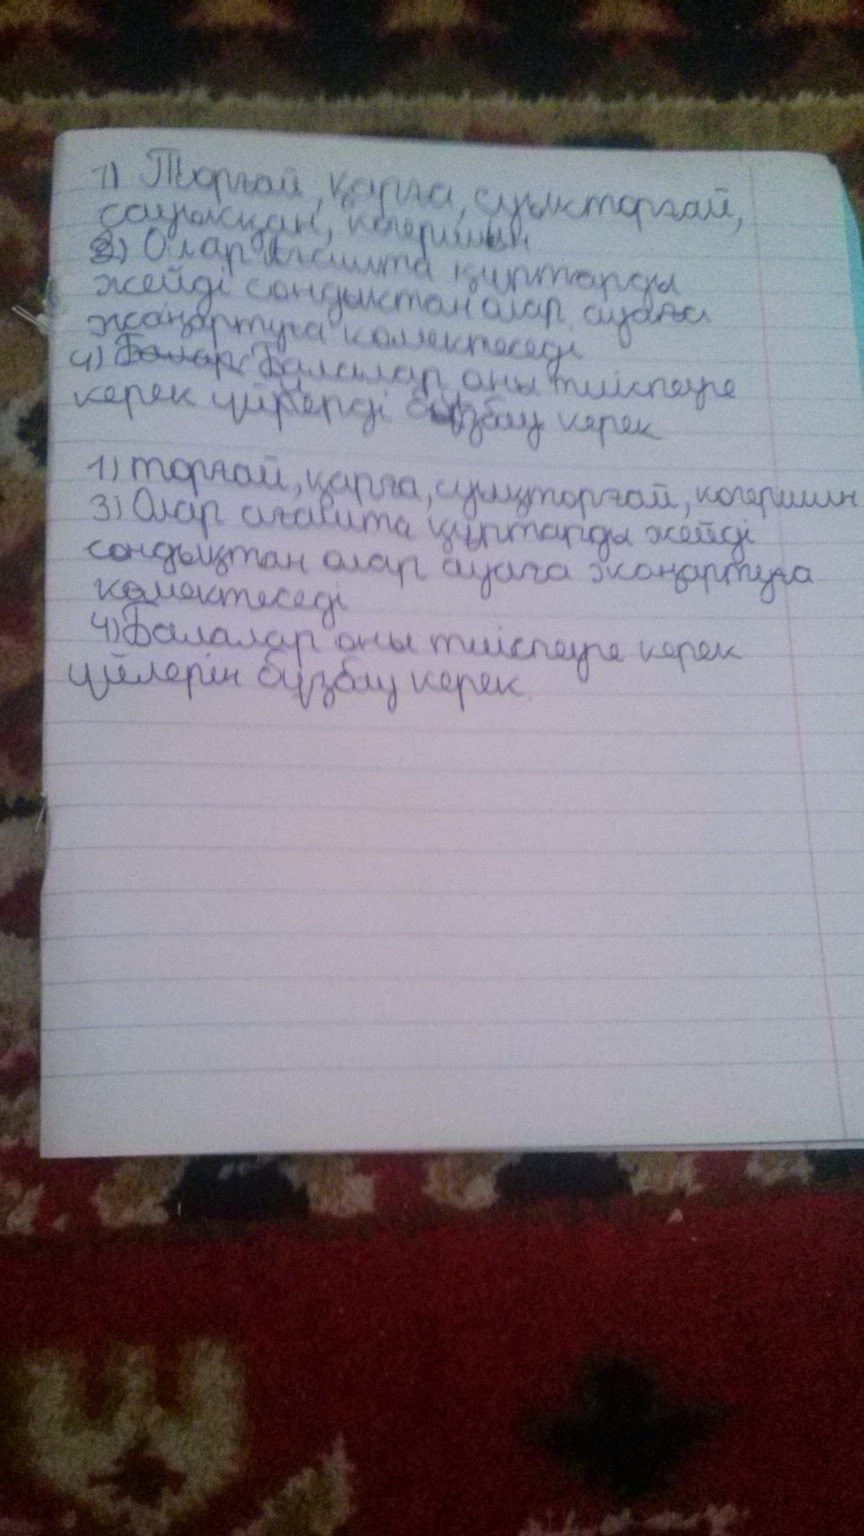 1) Торғай, қарға, суықторғай,
сауысқан, когершын
3) Олар ағашта құрттарды
жейді сондықтан олар ауаға
жаңартуға комектеседі
4) Балалар оны тиіспеуре
керек үйлерді бұзбау керек
1) торғай, қарға, суықторғай, когершин
3) Олар ағашта құрттарды жейді
сондықтан олар ауаға жаңартуға
комектеседі
4) Балалар оны тиіспеуге керек
үйлерін бұзбау керек.